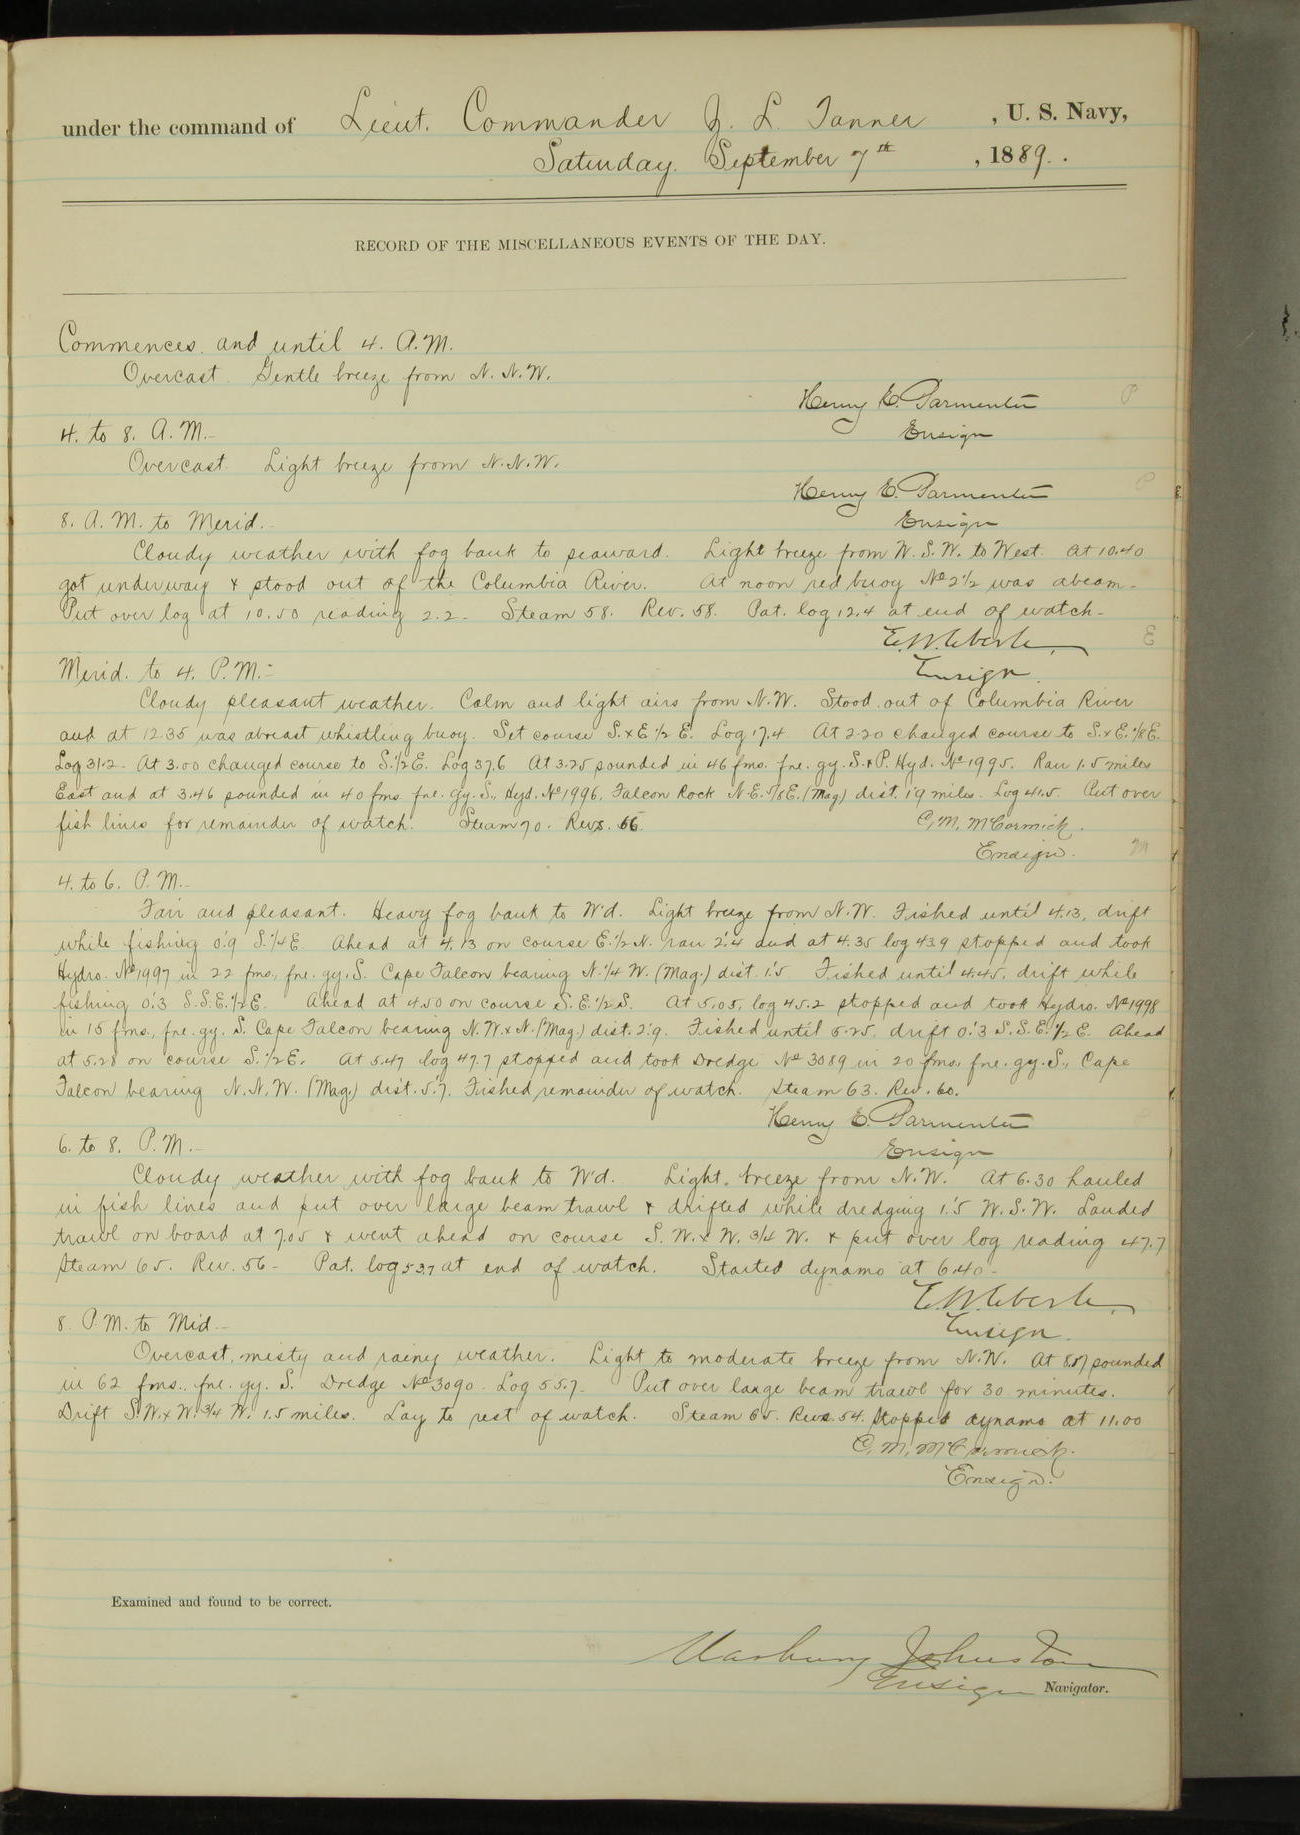 under the command of Lieut. Commander Z. L. Tanner, U. S. Navy,
Saturday, September 7th, 1889.
RECORD OF THE MISCELLANEOUS EVENTS OF THE DAY.
Commences and until 4. A.M.
Overcast. Gentle breeze from N.N.W.
Henry E. Parmenter P
Ensign
4. to 8. A.M.-
Overcast. Light breeze from N.N.W.
Henry E. Parmenter
Ensign
8. A.M. to Merid.-
Cloudy weather with fog bank to seaward. Light breeze from W.S.W. to West. At 10.40
got underway & stood out of the Columbia River. At noon red buoy No 2 1/2 was abeam.
Put over log at 10.50 reading 2.2. Steam 58. Rev. 58. Pat. log 12.4 at end of watch.
E.W. Eberle, E
Ensign.
Merid. to 4. P.M.:-
Cloudy pleasant weather. Calm and light airs from N.W. Stood out of Columbia River
and at 12.35 was abreast whistling buoy. Set course S.xE 1/2 E. Log 17.4 At 2.20 changed course to S.xE. 1/8 E.
Log 31.2. At 3.00 changed course to S. 1/2 E. Log 37.6 At 3.25 sounded in 46 fms. fne. gy. S.&P. Hyd. No 1995. Ran 1.5 miles
East and at 3.46 sounded in 40 fms. fne. gy. S., Hyd. No 1996, Falcon Rock N.E. 5/8 E. (Mag) dist. 1.9 miles. Log 41.5. Put over
fish lines for remainder of watch. Steam 70. Revs. 66.
C.M. McCormick.
Ensign. M
4. to 6. P.M.-
Fair and pleasant. Heavy fog bank to W'd. Light breeze from N.W. Fished until 4.13, drift
while fishing 0.'9 S. 1/4 E. Ahead at 4.13 on course E. 1/2 N. ran 2.'4 and at 4.35 log 43.9 stopped and took
Hydro. No 1997 in 22 fms., fne. gy. S. Cape Falcon bearing N. 1/4 W. (Mag.) dist. 1.'5 Fished until 4.45, drift while
fishing 0.'3 S.S.E. 1/2 E. Ahead at 4.50 on course S.E. 1/2 S. At 5.05, log 45.2 stopped and took Hydro. No 1998
in 15 fms., fne. gy. S. Cape Falcon bearing N.W.xN. (Mag.) dist. 2.'9. Fished until 5.25, drift 0.'3 S.S.E. 1/2 E. Ahead
at 5.28 on course S. 1/2 E. At 5.47 log 47.7 stopped and took Dredge No 3089 in 20 fms., fne. gy. S., Cape
Falcon bearing N.N.W. (Mag.) dist. 5.'7. Fished remainder of watch. Steam 63. Rev. 60.
Henry E. Parmenter
Ensign
6. to 8. P.M.-
Cloudy weather with fog bank to W'd. Light breeze from N.W. At 6.30 hauled
in fish lines and put over large beam trawl & drifted while dredging 1.'5 W.S.W. Landed
trawl on board at 7.05 & went ahead on course S.W.xW. 3/4 W. & put over log reading 47.7
Steam 65. Rev. 56- Pat. log 53.7 at end of watch. Started dynamo at 6.40-
E.W. Eberle,
Ensign.
8. P.M. to Mid-
Overcast, misty and rainy weather. Light to moderate breeze from N.W. At 8.07 sounded
in 62 fms., fne. gy. S. Dredge No 3090. Log 55.7. Put over large beam trawl for 30 minutes.
Drift S.W.xW. 3/4 W. 1.5 miles. Lay to rest of watch. Steam 65. Revs. 54. Stopped dynamo at 11.00
C.M. McCormick.
Ensign.
Examined and found to be correct.
Marbury Johnston
Ensign Navigator.